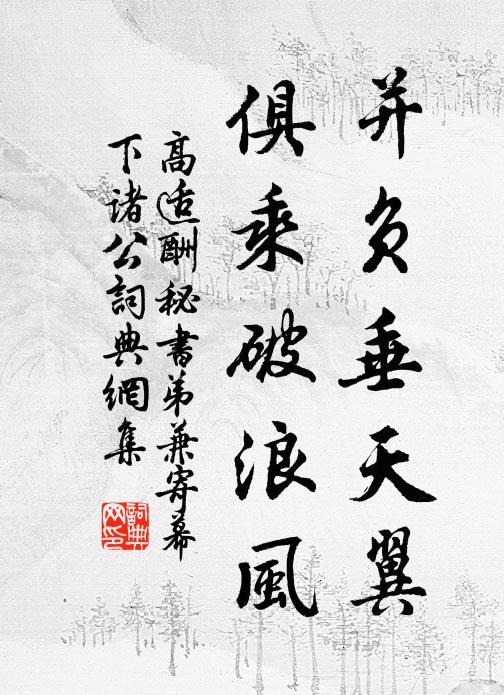 并负垂天翼
俱乘破浪风
高适酬秘書弟兼寄幕
下諸公詞典網集
詞典网印